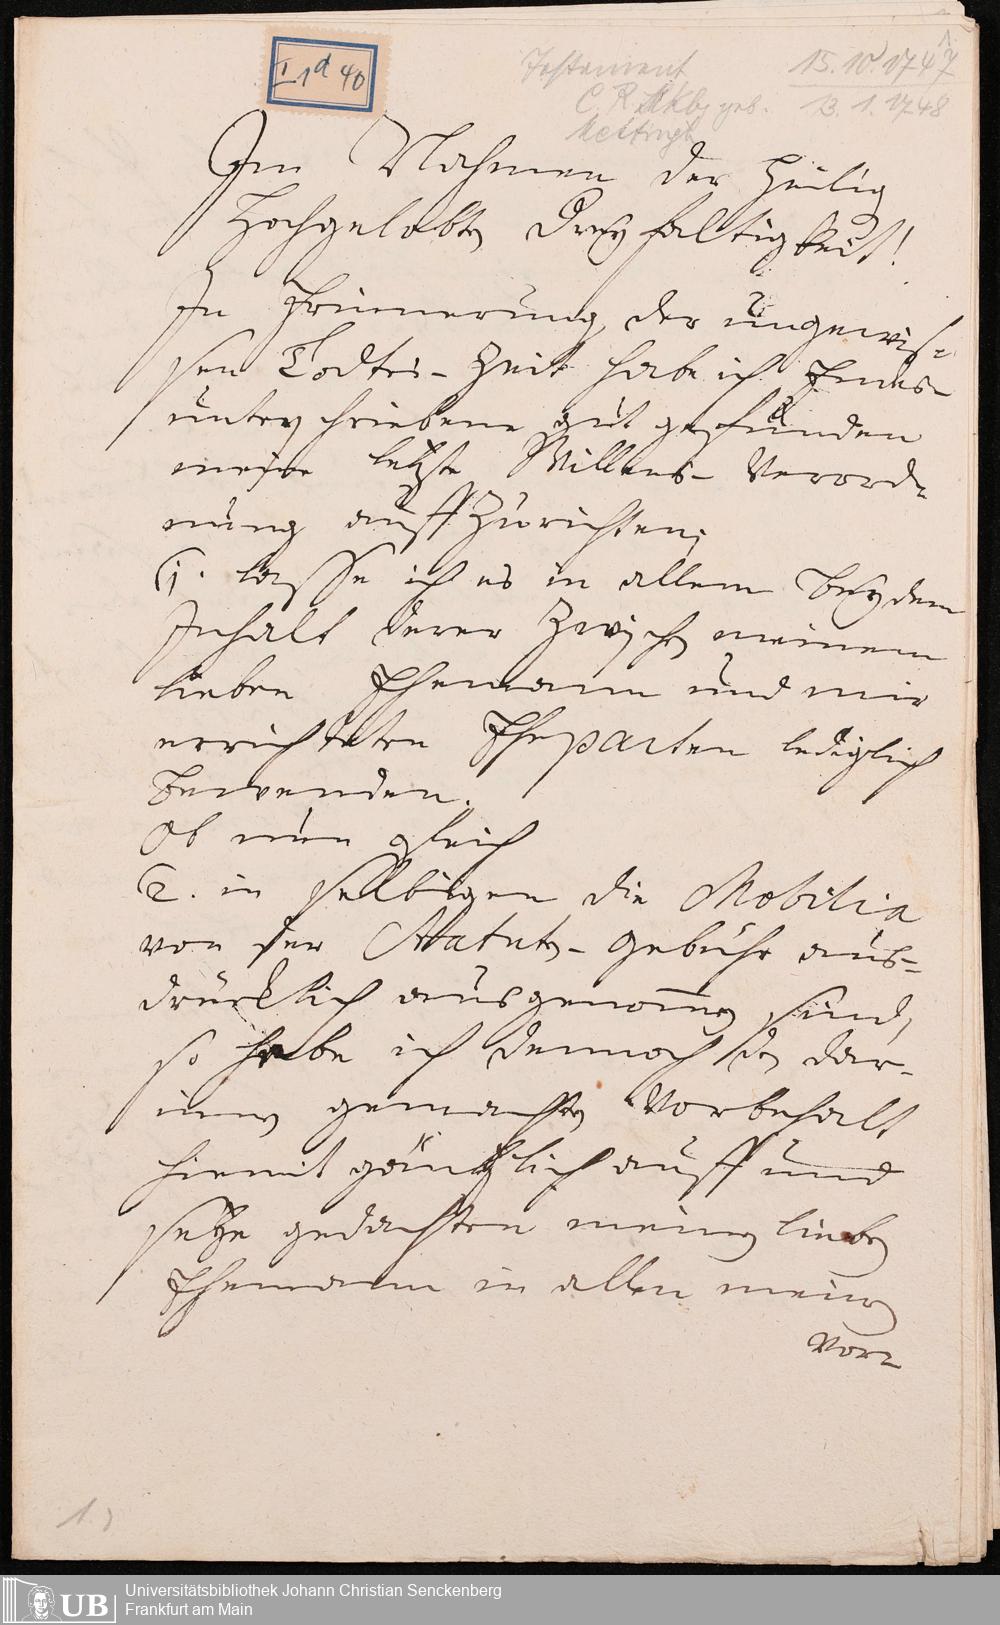 I 1 d 40
Testament
C. R. geb.
Mettingh
15. 10. 1747
13. 1. 1748
Im Nahmen der Heilig
Hochgelobten Dreyfaltigkeit!
In Erinnerung der ungewiß-
sen Todtes-Zeit habe ich Endes-
unterschriebene gut gefunden
meine letzte Willens-Verord-
nung auffzurichten;
1. lasse ich es in allem bey dem
Inhalt derer Zwischen meinem
lieben Ehemann und mir
errichteten Ehepacten lediglich
bewenden.
Ob nun gleich
2. in selbigen die Mobilia
von der Statuten-Gebühr aus-
drücklich ausgenommen sind,
so habe ich dennoch den dar-
innen gemachten Vorbehalt
hiemit gäntzlich auff und
setze gedachten meinen lieben
Ehemann in allen meinen
Vor-
1.)
UB
Universitätsbibliothek Johann Christian Senckenberg
Frankfurt am Main